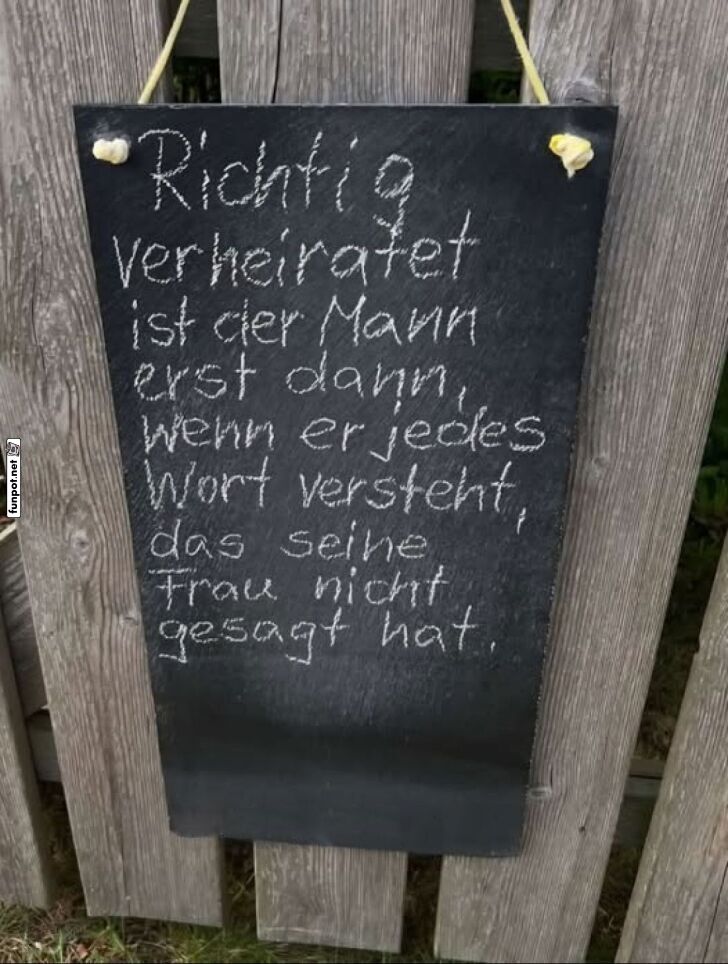 Richtig
verheiratet
ist der Mann
erst dann,
wenn er jedes
Wort versteht,
das seine
Frau nicht
gesagt hat.
funpot.net